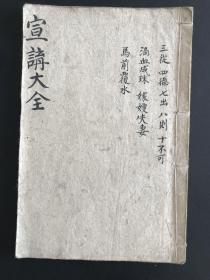 宣講大全
三從 四德 七出 八則 十不可
滴血成珠 嫁嫂失妻
馬前覆水